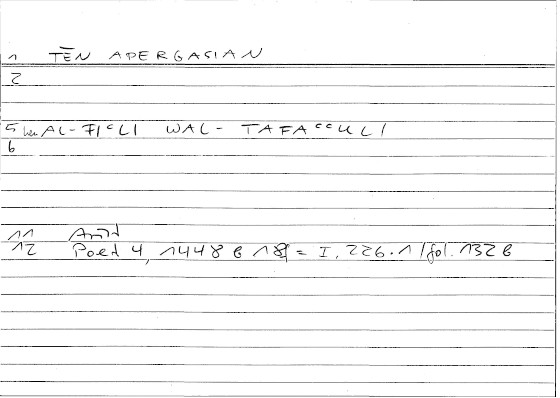 1 TĒN APERGASIAN
2
5 AL-FIᶜLI WAL-TAFAᶜᶜULI
6
11
12 Poet 4, 1448 b 18f = I, 226.1 / fol. 132 b